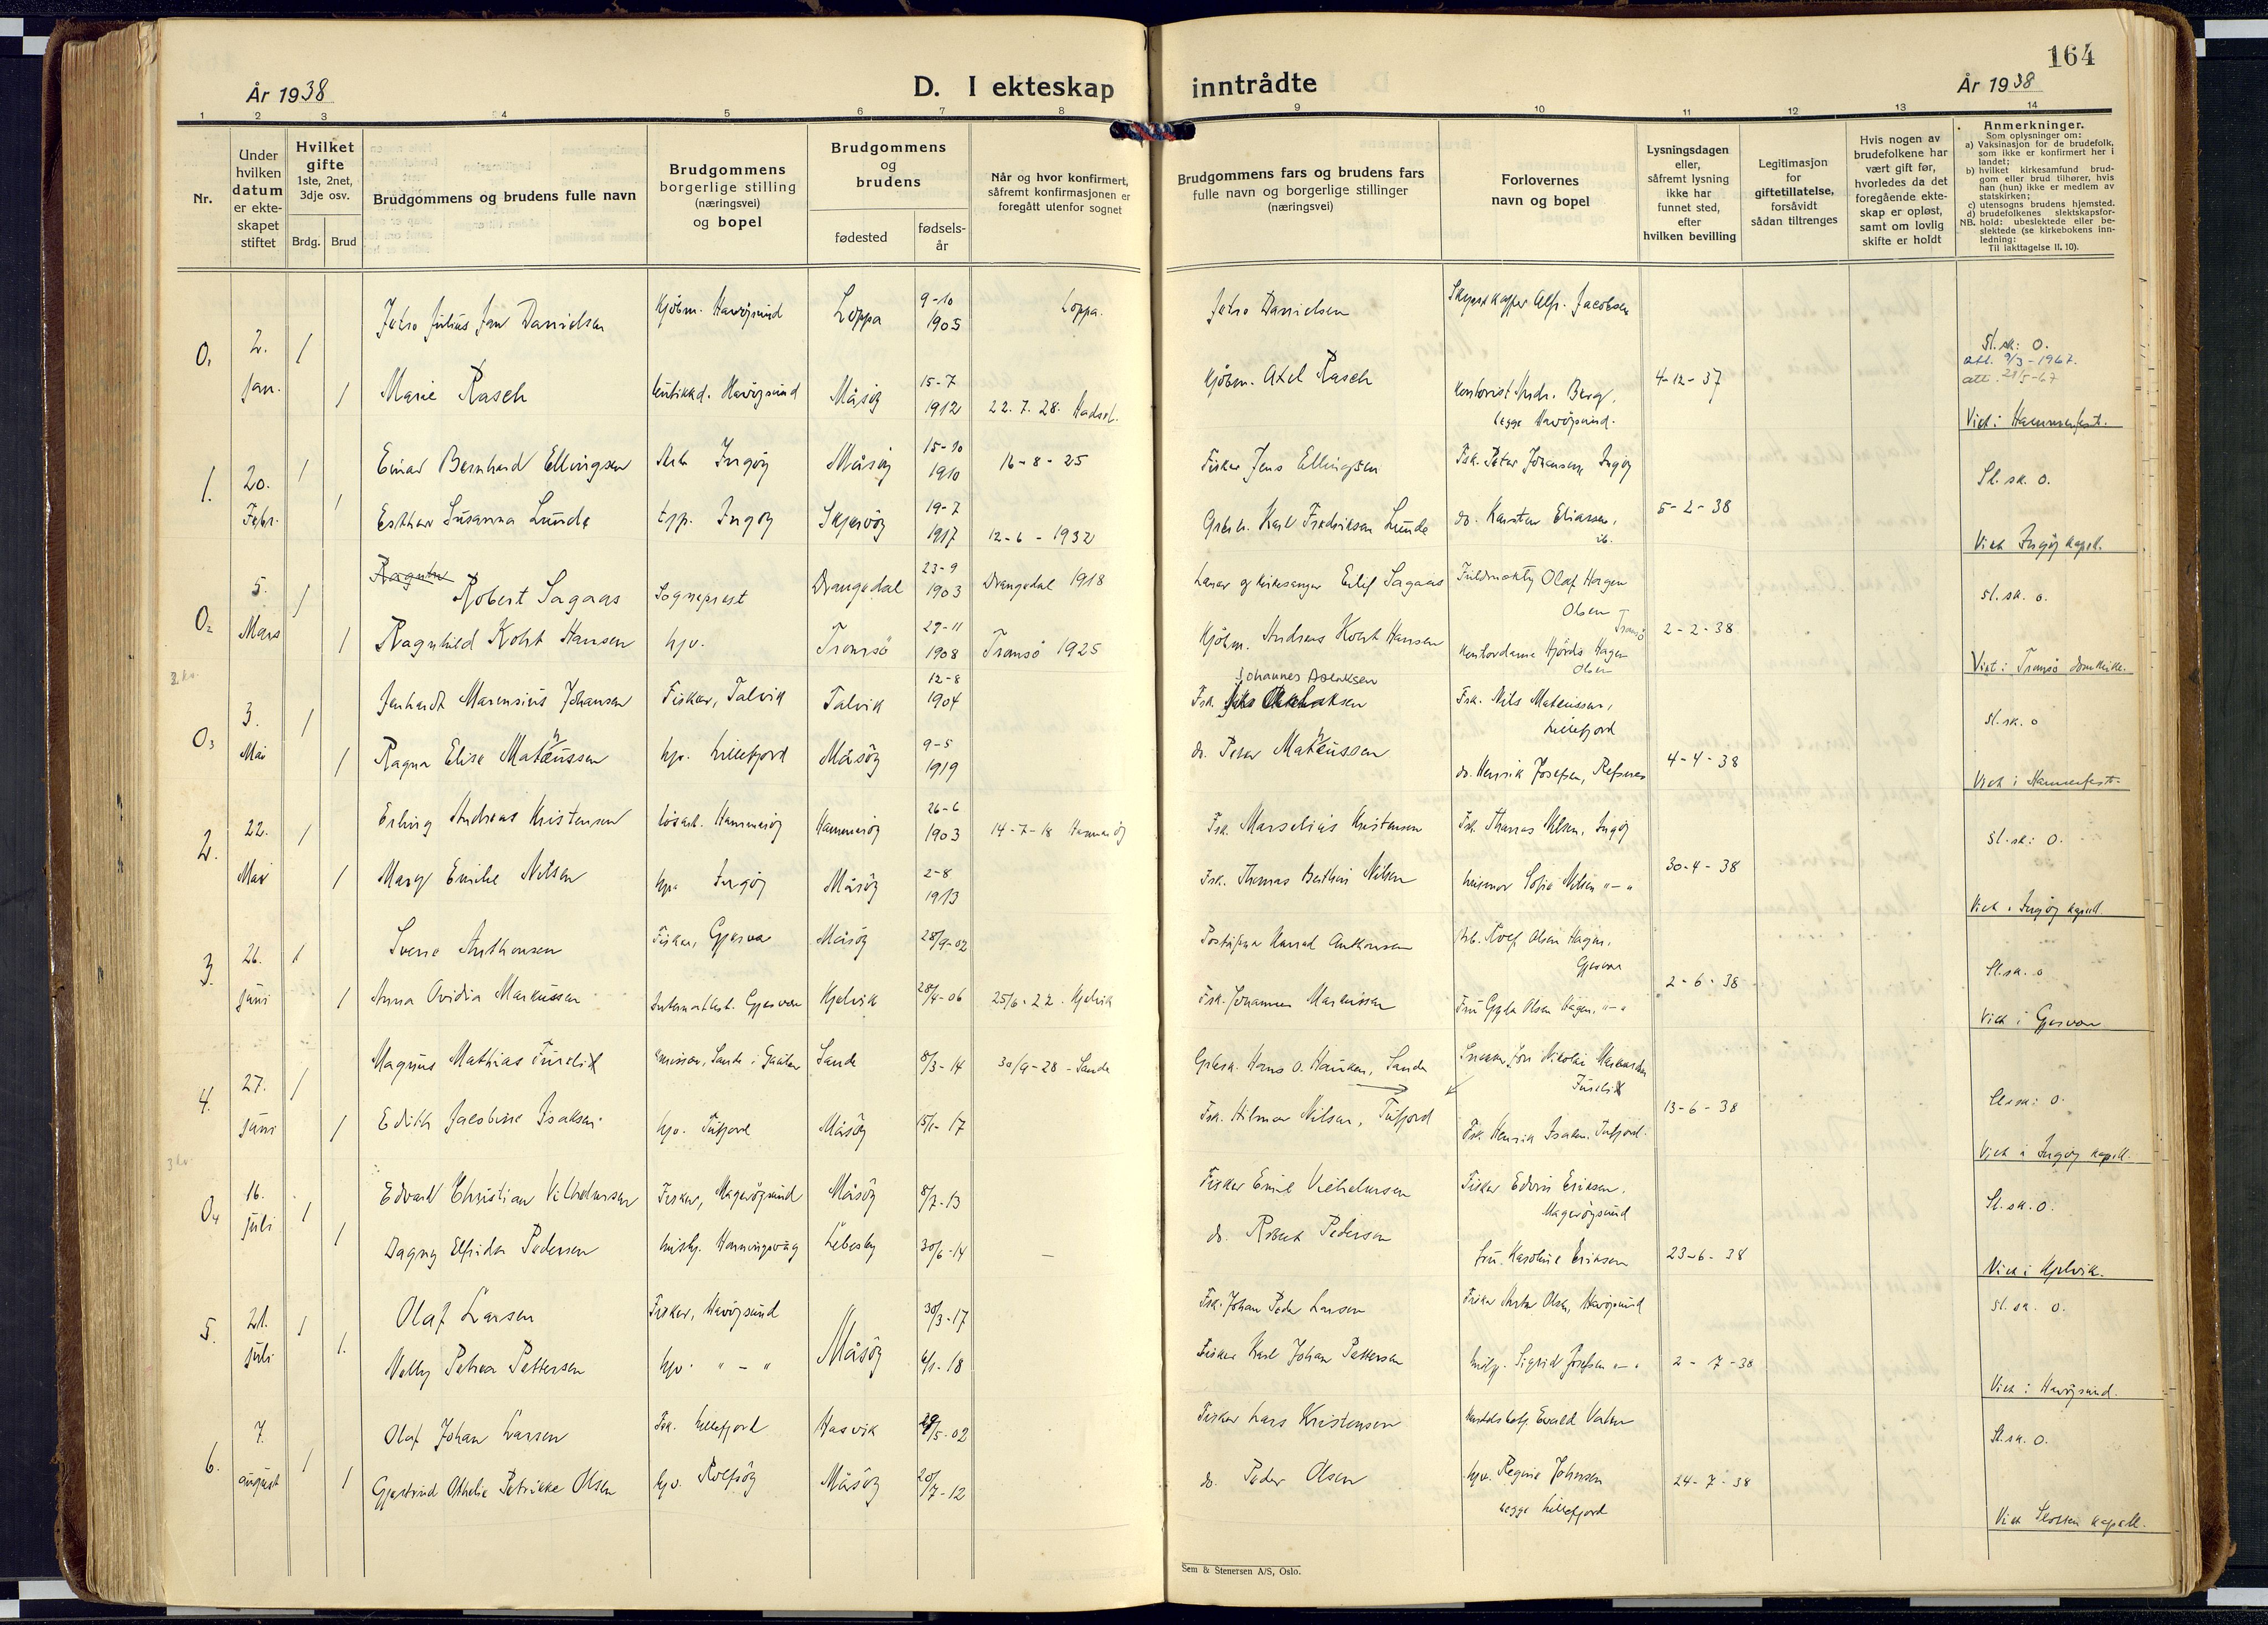 164
År 1938
D. I ekteskap inntrådte
År 1938
1 2 3 4 5 6 7 8 9 10 11 12 13 14
Nr.
Under hvilken datum er ekteskapet stiftet
Hvilket gifte 1ste, 2net, 3dje osv.
Brdg. Brud
Brudgommens og brudens fulle navn
Brudgommens borgerlige stilling (næringsvei) og bopel
Brudgommens og brudens
fødested
fødselsår
Når og hvor konfirmert, såfremt konfirmasjonen er foregått utenfor sognet
Brudgommens fars og brudens fars fulle navn og borgerlige stillinger (næringsvei)
Forlovernes navn og bopel
Lysningsdagen eller, såfremt lysning ikke har funnet sted, efter hvilken bevilling
Legitimasjon for giftetillatelse, forsåvidt sådan tiltrenges
Hvis nogen av brudefolkene har vært gift før, hvorledes da det foregående ekteskap er opløst, samt om lovlig skifte er holdt
Anmerkninger.
Som oplysninger om:
a) Vaksinasjon for de brudefolk, som ikke er konfirmert her i landet;
b) hvilket kirkesamfund brudgom eller brud tilhører, hvis han (hun) ikke er medlem av statskirken;
c) utensogns brudens hjemsted.
d) brudefolkenes slektskapsforhold: ubeslektede eller beslektede (se kirkebokens innledning:
NB.
Til iakttagelse II. 10).
O1 2. Jan. 1 Julius Danielsen Kjöbm. Havöysund Loppa 9-10 1905 Loppa. Danielsen Alf. Jacobsen Sl.sk: O.
att. 9/3-1967.
att. 21/5-67
1 Marie Rasch Havöysund Måsöy 15-7 1912 22.7.28. Hadsel. Kjöbm. Axel Rasch Kontorist Andr. Berg, begge Havöysund. 4-12-37 Viet i Hammerfest.
1. 20. Febr. 1 Einar Bernhard Ellingsen Arb. Ingöy Måsöy 15-10 1910 16-8-25 Fisker Jens Ellingsen Fsk. Peter Johansen, Ingöy Sl.sk. o.
1 Esther Susanna Lunde Ingöy Skjervöy 19-7 1917 12-6-1932 Karl Fredriksen Lunde do. Karsten Eliassen, ib. 5-2-38 Viet Ingöy kapell.
O2 5. Mars 1 Robert Sagaas Sogneprest Drangedal 23-9 1903 Drangedal 1918 Lærer og kirkesanger Sagaas Olaf Hagen Olsen Sl.sk. o.
1 Ragnhild Kohrt Hansen hjv. Tromsö 29-11 1908 Tromsö 1925 Kjöbm. Andreas Kohrt Hansen Kontordame Hjördis Hagen Olsen Tromsö 2-2-38 Viet i Tromsö domkirke.
O3 3. Mai 1 Marensius Johansen Fisker, Talvik Talvik 12-8 1904 Fsk. Johannes Fsk. Nils Mateussen, Lillefjord Sl.sk. o
1 Ragna Elise Mateussen hjv. Lillefjord Måsöy 9-5 1919 do. Peder Mateussen do. Henrik Josefsen, Refsnes 4-4-38 Viet i Hammerfest.
2. 22. Mai 1 Erling Andreas Kristensen Hammeröy Hammeröy 26-6 1903 14-7-18 Hammeröy Fsk. Marselius Kristensen Fsk. Thomas Nilsen, Ingöy Sl.sk: O.
1 Mary Emilie Nilsen hjv. Ingöy Måsöy 2-8 1913 Fsk. Thomas Nilsen Sofie Nilsen "-" 30-4-38 Viet i Ingöy kapell.
3. 26. Juni 1 Sverre Anthonsen Fisker, Gjesvær Måsöy 28/9-02 Konrad Anthonsen Arb. Rolf Olsen Hagen, Gjesvær Sl.sk. o
1 Anna Ovidia Markussen Gjesvær Kjelvik 28/4-06 25/6-22. Kjelvik Fsk. Johannes Markussen Fru Olsen Hagen, "-" 2-6-38 Viet i Gjesvær
4. 27. Juni 1 Magnus Mathias Sande 8/3-14 30/9-28 - Sande Hans O. Hauken, Sande Nikolai Sl.sk: O.
1 Edith Jacobine Isaksen. hjv. Tufjord Måsöy 15/1-17 Fsk. Hilmar Nilsen, Tufjord Fsk. Henrik Isaksen, Tufjord. 13-6-38 Viet i Ingöy kapell.
O4 16. Juli 1 Edvard Christian Vilhelmsen Fisker, Mageröysund Måsöy 8/7-13 Fisker Emil Vilhelmsen Fisker Edvin Eriksen, Mageröysund Sl.sk. O.
1 Dagny Elfrida Pedersen Honningsvåg Lebesby 30/6-14 - do. Robert Pedersen Fru Karoline Eriksen 23-6-38 Viet i Kjelvik.
5. 21. Juli 1 Olaf Larsen Fisker, Havöysund Måsöy 30/3-17 Fsk. Johan Peder Larsen Fisker Olsen, Havöysund Sl.sk. O.
1. Nelly Petrea Pettersen hjv. "-" 6/1-18 Fisker Karl Johan Pettersen Sigrid Josefsen "-" 2-7-38 Viet i Havöysund.
6. 7. august 1 Olaf Johan Larsen Fsk. Lillefjord Hasvik 29/5-02 Fisker Lars Kristensen Evald Sl.sk. O.
1 Othelie Petrikke Olsen hjv. Rolfsöy Måsöy 20/7-12 do. Peder Olsen hjv. Regine Johnsen begge Lillefjord 24-7-38 Viet Slotten kapell.
Sem & Stenersen A/S, Oslo.